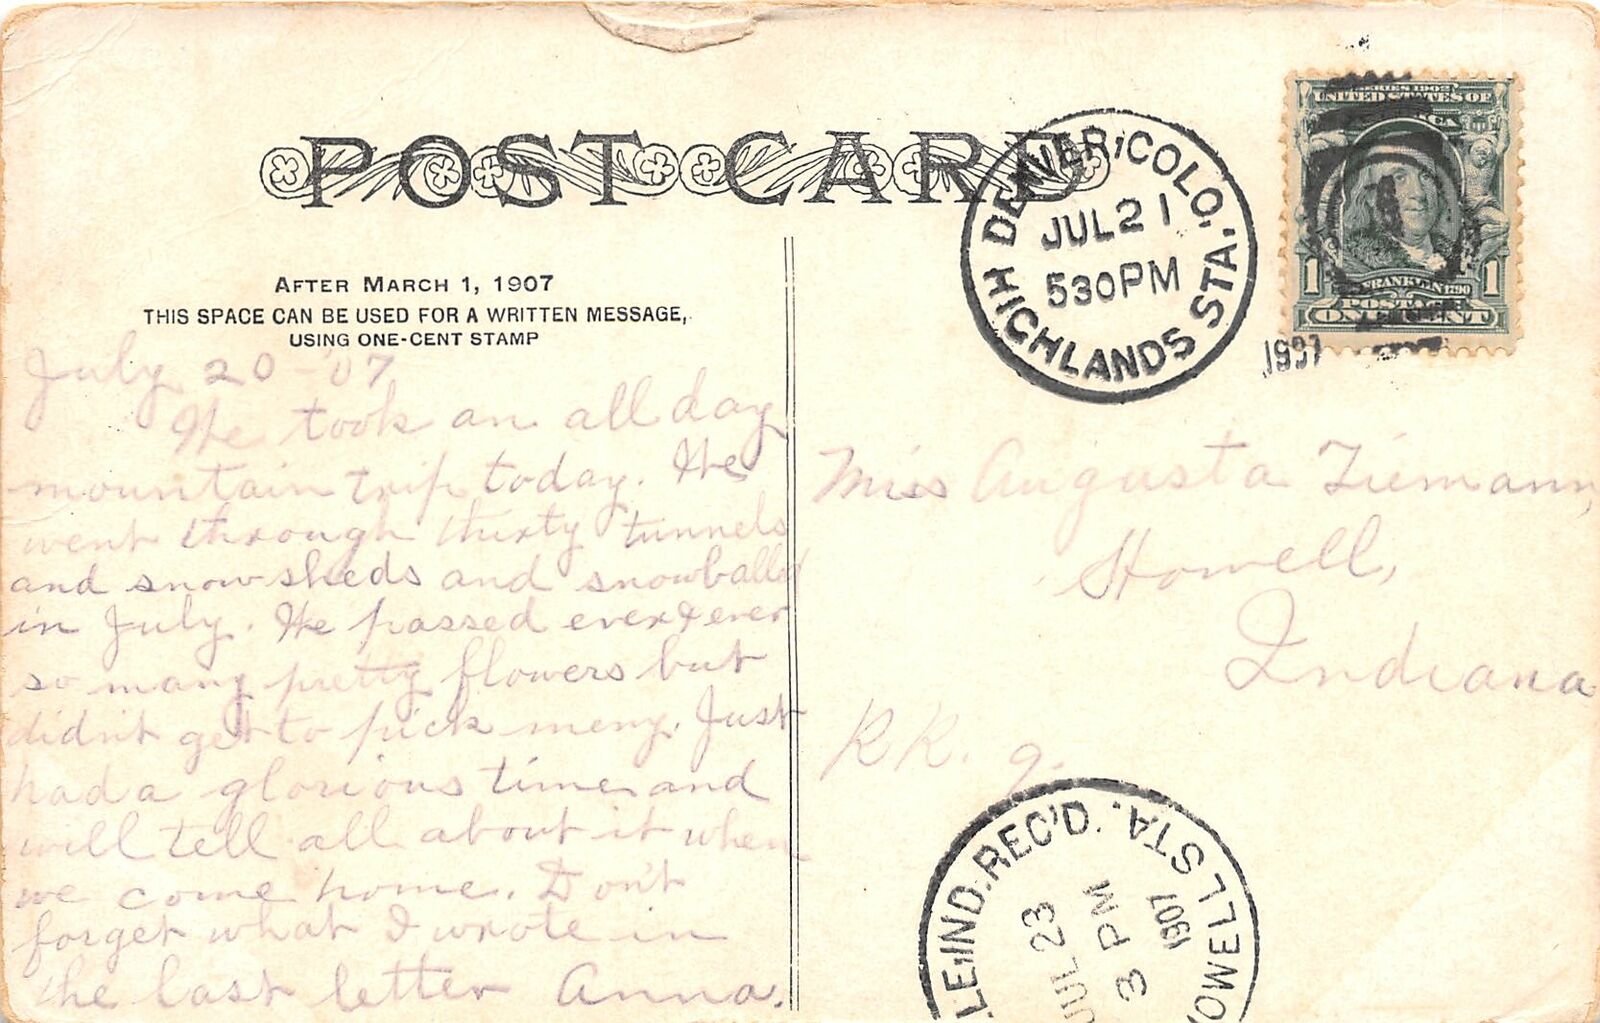 POST CARD
AFTER MARCH 1, 1907
THIS SPACE CAN BE USED FOR A WRITTEN MESSAGE,
USING ONE-CENT STAMP
July 20 - '07
We took an all day
mountain trip today. We
went through thirty tunnels
and snow sheds and snowballed
in July. We passed ever & ever
so many pretty flowers but
didn't get to pick meny. Just
had a glorious time and
will tell all about it when
we come home. Don't
forget what I wrote in
the last letter Anna.
DENVER, COLO.
JUL 21
530 PM
HIGHLANDS STA.
1907
SERIES 1902
UNITED STATES OF
AMERICA
1 FRANKLIN 1790 1
POSTAGE
ONE CENT
Miss Augusta Tiemann,
Howell,
Indiana
R R. 9.
LE, IND. REC'D.
JUL 23
3 PM
1907
HOWELL STA.